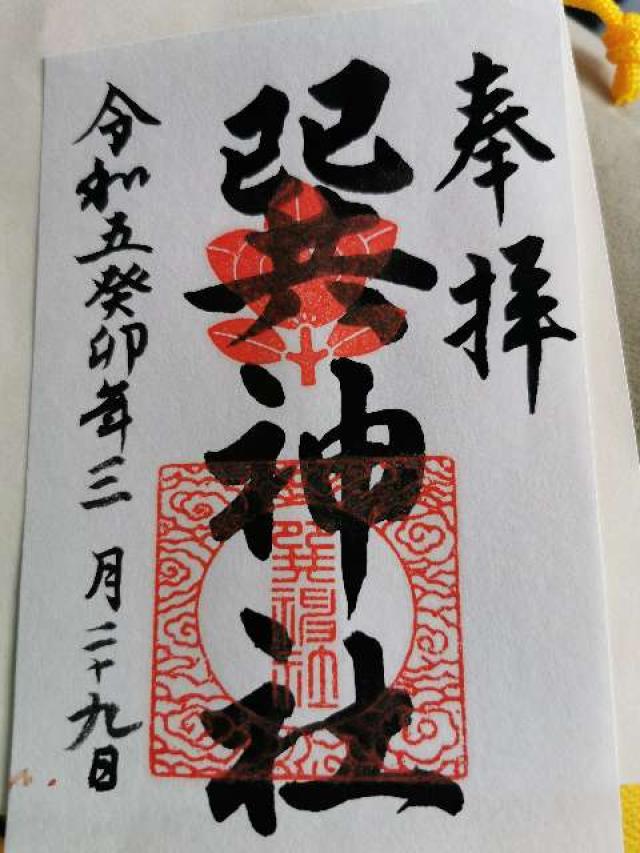 奉拝
巽神社
令和五癸卯年三月二十九日
巽神社